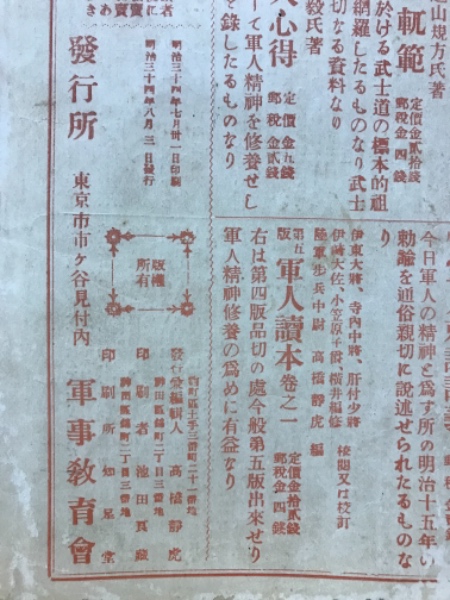 山規方氏著
軌範
定價金貳拾錢
郵税金四錢
於ける武士道の標本的祖
網羅したるものなり武士
切なる資料なり
毅氏著
人心得
定價金五錢
郵税金貳錢
て軍人精神を修養せし
を錄したるものなり
今日軍人の精神と爲す所の明治十五年
勅諭を通俗親切に説述せられたるものな
り
伊東大將、寺內中將、肝付少將
伊崎大佐、小笠原子爵、橫井編修
校閲又は校訂
陸軍步兵中尉 高橋靜虎 編
第五版 軍人讀本 卷之一
定價金拾貳錢
郵税金四錢
右は第四版品切の處今般第五版出來せり
軍人精神修養の爲めに有益なり
明治三十四年七月卅一日印刷
明治三十四年八月三日發行
版權
所有
麴町區土手三番町二十一番地
發行兼編輯人 高橋靜虎
神田區錦町二丁目三番地
印刷者 池田
神田區錦町二丁目三番地
印刷所 如是堂
發行所
東京市市ヶ谷見付內
軍事教育會